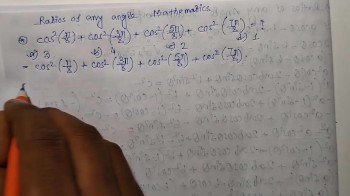 Ratios of any angle - Mathematics
cos²(π/8) + cos²(3π/8) + cos²(5π/8) + cos²(7π/8) = ?
a) 3 b) 4 c) 2 d) 1
= cos²(π/8) + cos²(3π/8) + cos²(5π/8) + cos²(7π/8).